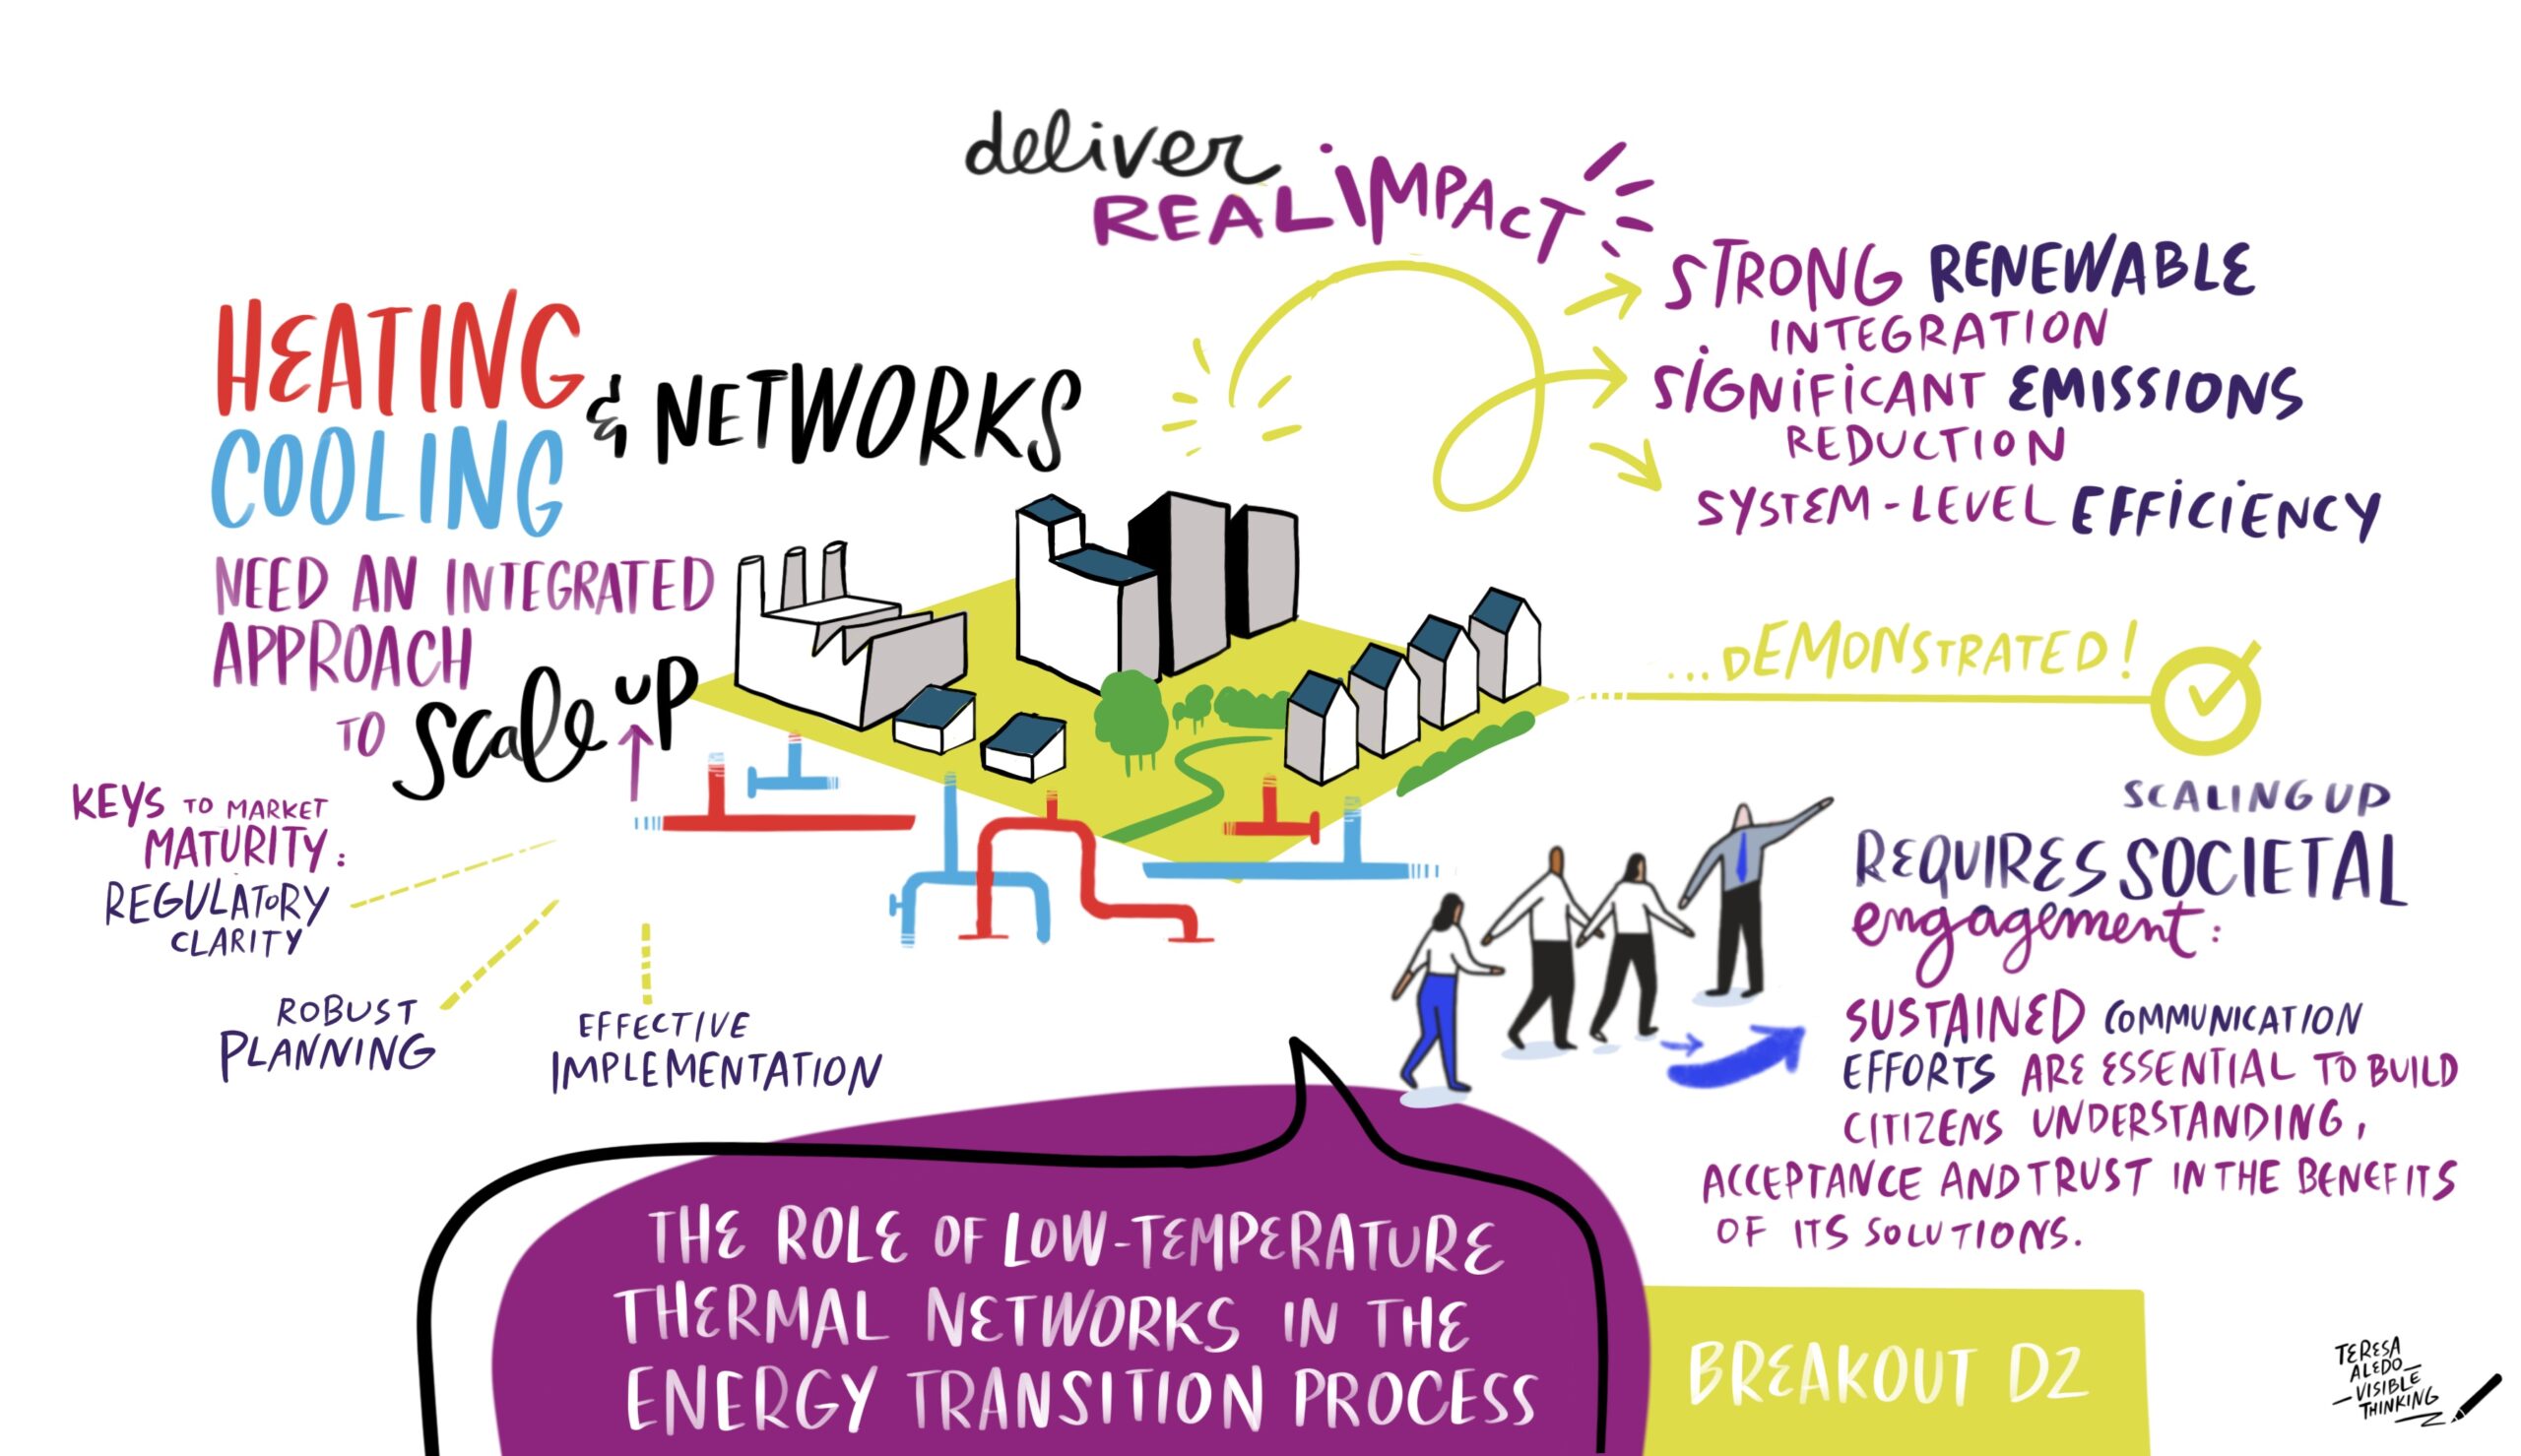 deliver
REAL IMPACT
HEATING
COOLING
& NETWORKS
NEED AN INTEGRATED
APPROACH
TO scale up
KEYS TO MARKET
MATURITY:
REGULATORY
CLARITY
ROBUST
PLANNING
EFFECTIVE
IMPLEMENTATION
STRONG RENEWABLE
INTEGRATION
SIGNIFICANT EMISSIONS
REDUCTION
SYSTEM-LEVEL EFFICIENCY
...DEMONSTRATED!
SCALING UP
REQUIRES SOCIETAL
engagement:
SUSTAINED COMMUNICATION
EFFORTS ARE ESSENTIAL TO BUILD
CITIZENS UNDERSTANDING,
ACCEPTANCE AND TRUST IN THE BENEFITS
OF ITS SOLUTIONS.
THE ROLE OF LOW-TEMPERATURE
THERMAL NETWORKS IN THE
ENERGY TRANSITION PROCESS
BREAKOUT D2
TERESA
ALEDO
VISIBLE
THINKING